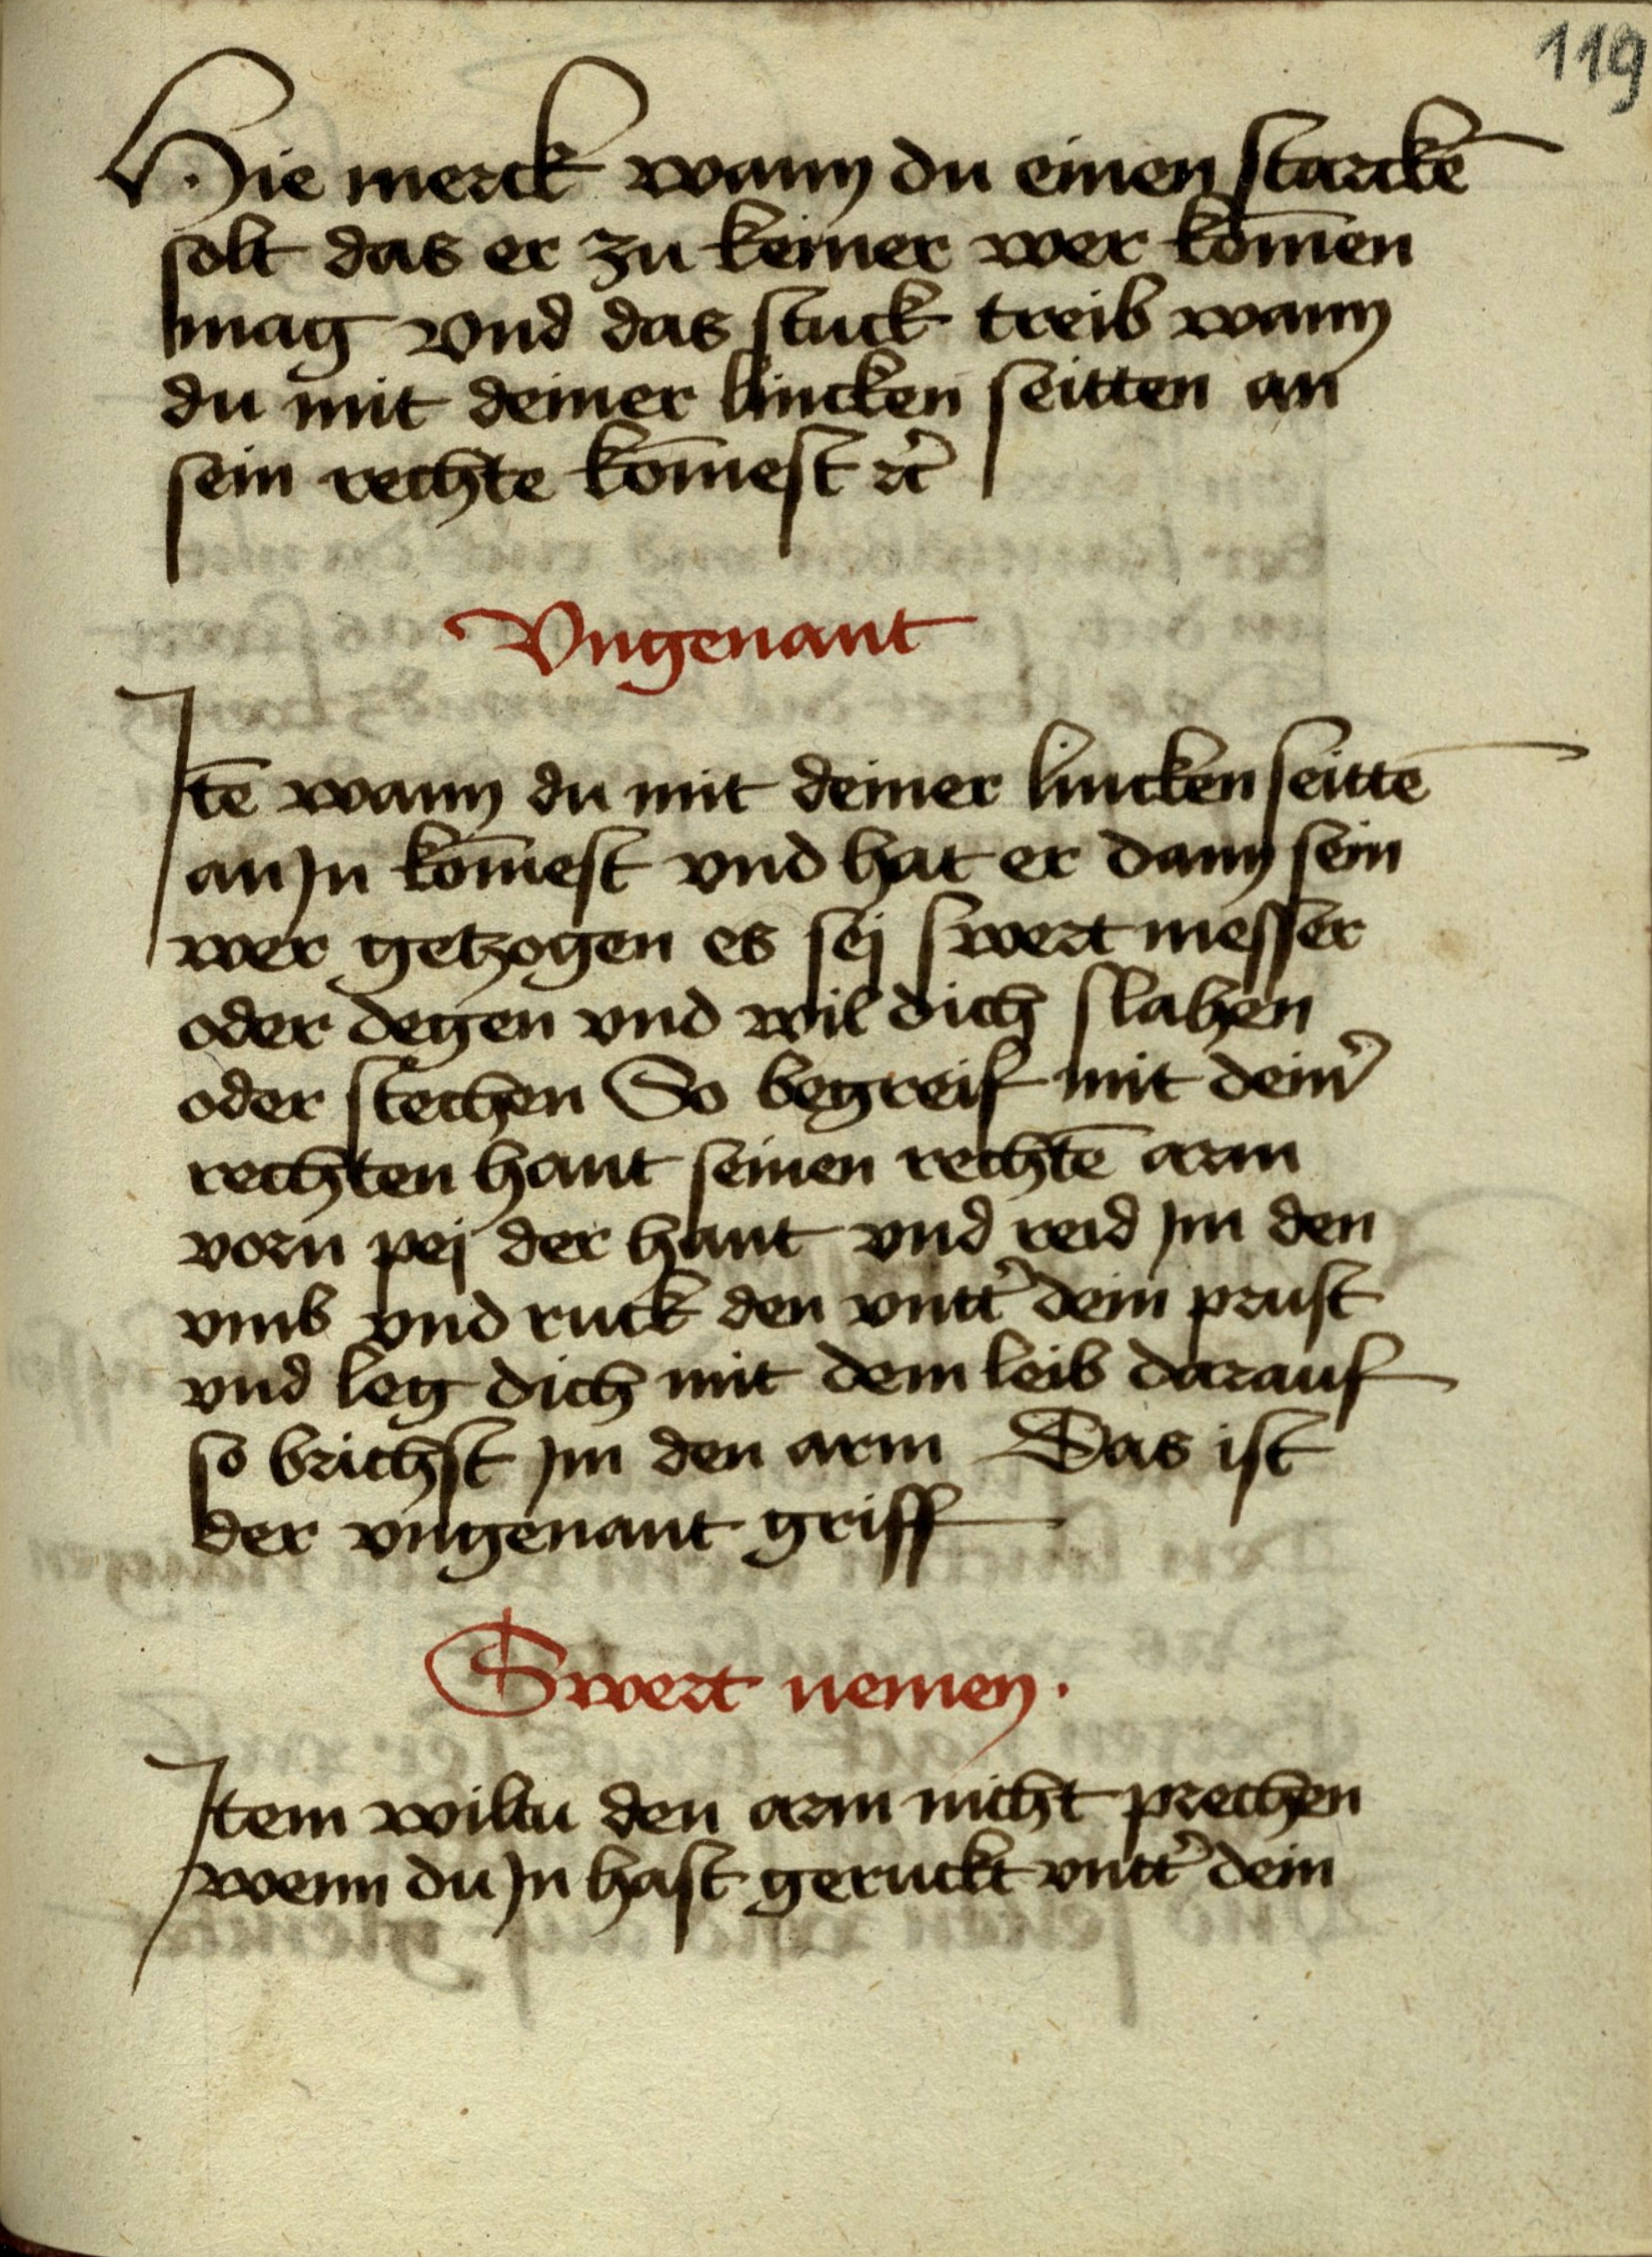 119
Hie merck wann du einen starckē
solt das er zu keiner wer kom̄en
mag vnd das stuck treib wann
du mit deiner lincken seitten an
sein rechte kom̄est ꝛc̃
Vngenant
Itē wann du mit deiner lincken seittē
an Jn kom̄est vnd hat er dann sein
wer getzogen es sej swert messer
oder degen vnd wil dich slahen
oder stechen So begreif mit dein̾
rechten hant seinen rechtē arm
vorn pej der hant vnd reid Jm den
vmb vnd ruck den vntt̾ dein prust
vnd leg dich mit dem leib darauf
so brichst Jm den arm Das ist
der vngenant griff
Swert nemen .
Item wiltu den arm nicht prechen
wenn du Jn hast geruckt vntt̾ dein